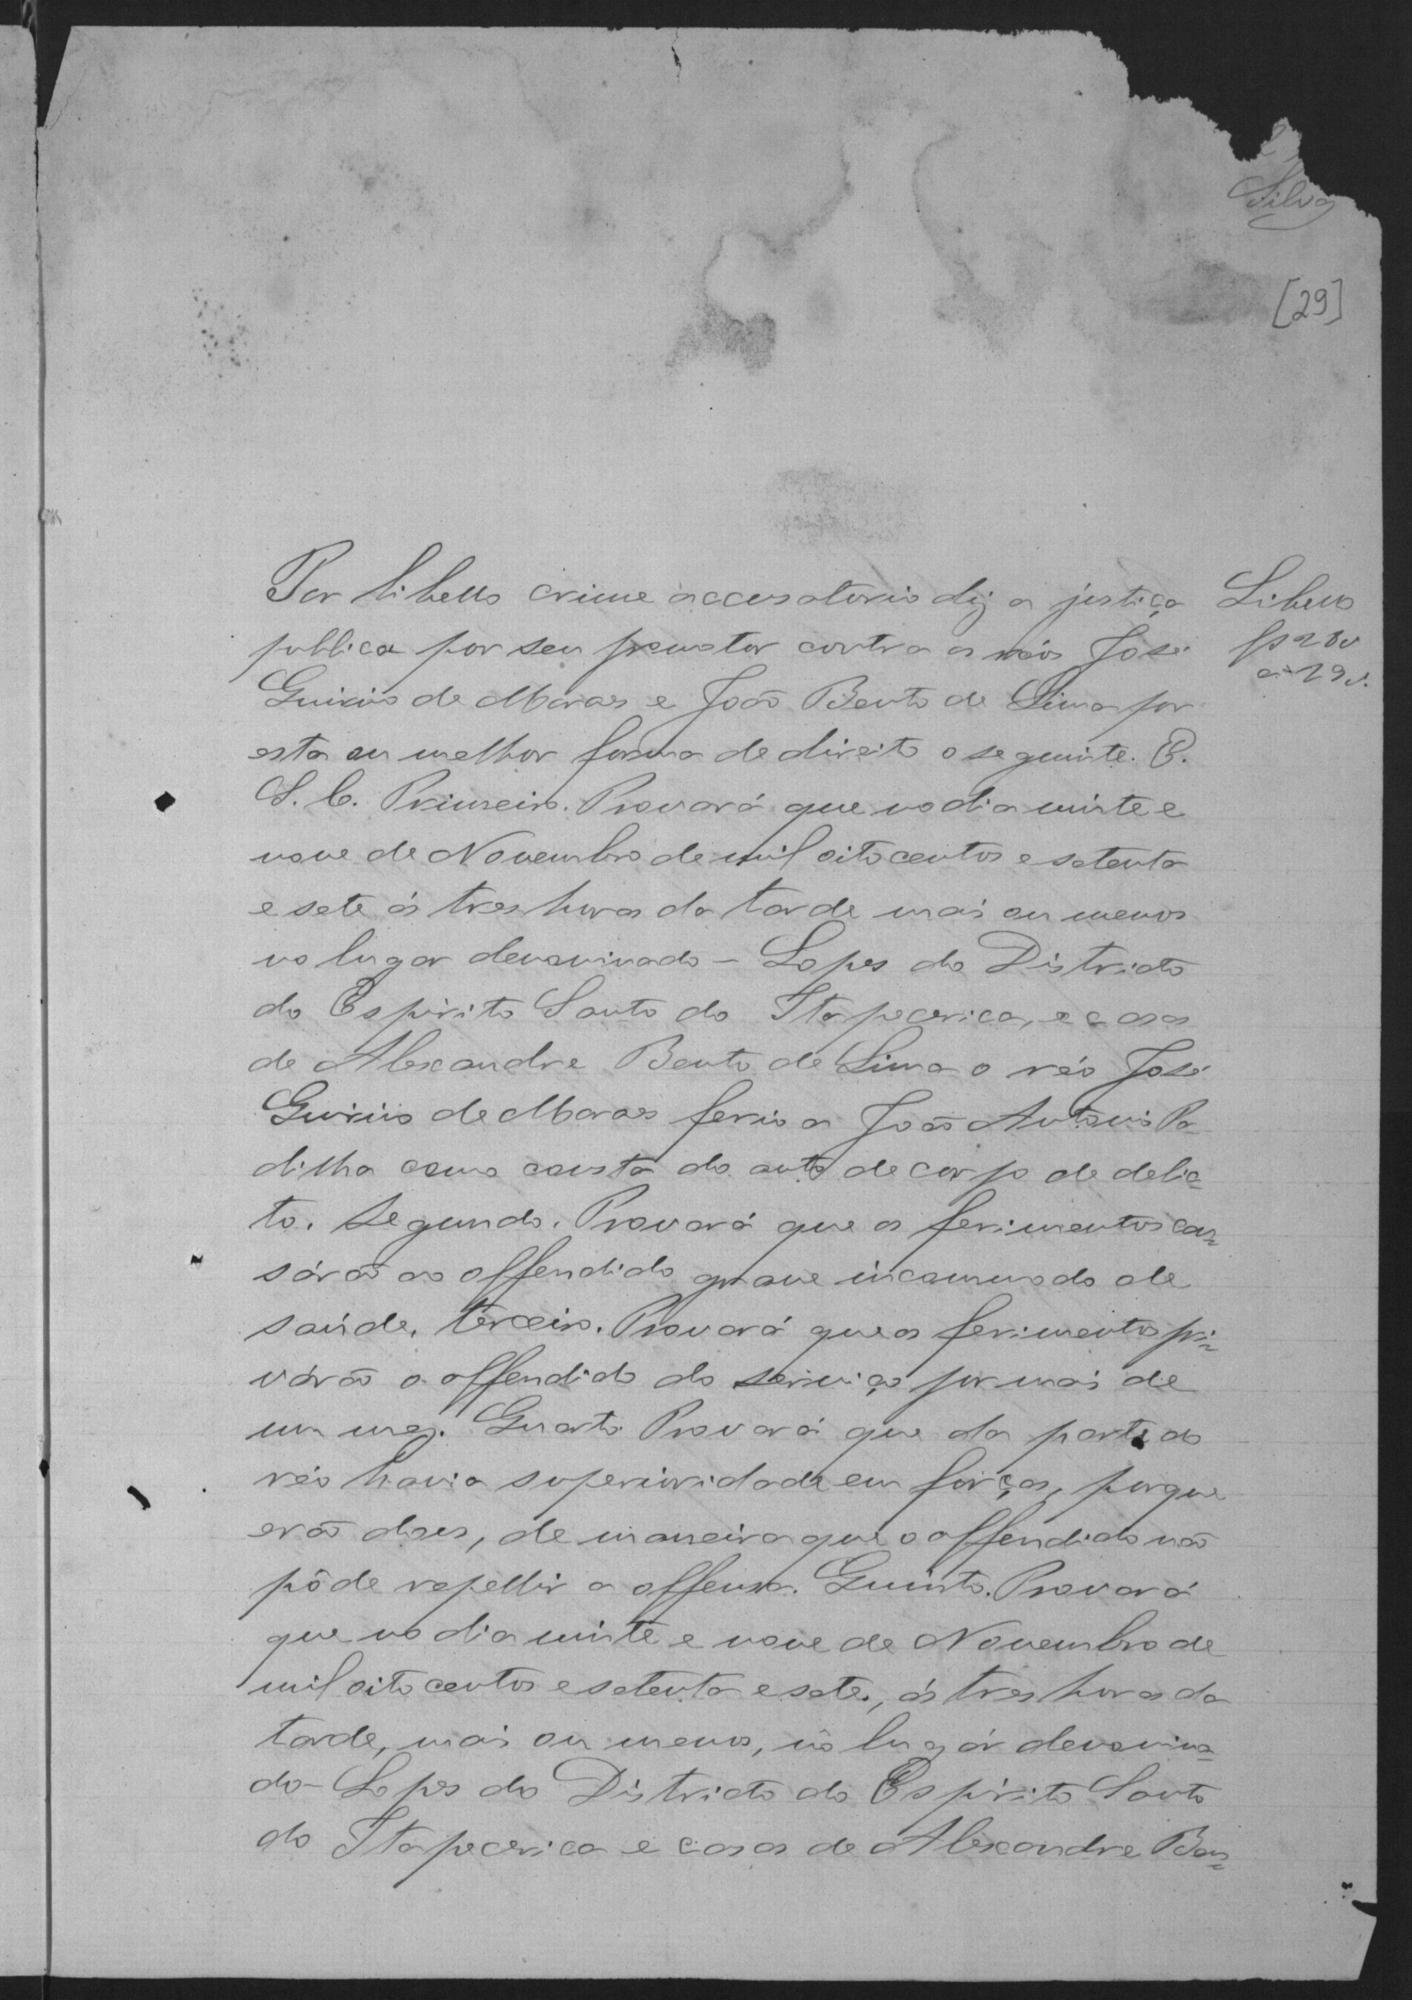 Silva
[29]
Por libello crime accusatorio diz a justiça
publica por seu promotor contra os réos José
Quirino de Moraes e João Bento de Lima por
esta ou melhor forma de direito o seguinte. E.
S. C. Primeiro. Provará que no dia vinte e
nove de Novembro de mil oitocentos e setenta
e sete ás tres horas da tarde mais ou menos
no lugar denominado - Lopes do Districto
do Espirito Santo da Itapecerica, e casa
de Alexandre Bento de Lima o réo José
Quirino de Moraes ferio a João Antonio Pa-
dilha como consta do auto de corpo de delic-
to. Segundo. Provará que os ferimentos cau-
sárão ao offendido grave incommodo de
saúde. terceiro. Provará que os ferimentos pri-
várão o offendido do serviço por mais de
um mez. Quarto Provará que da parte do
réo havia superioridade em forças, porque
erão dois, de maneira que o offendido não
pôde repellir a offensa. Quinto. Provará
que no dia vinte e nove de Novembro de
mil oito centos e setenta e sete, ás tres horas da
tarde, mais ou menos, no lugar denomina-
do - Lopes do Districto do Espirito Santo
da Itapecerica e casa de Alexandre Ben-
Libello
fs 28v
a 29v.